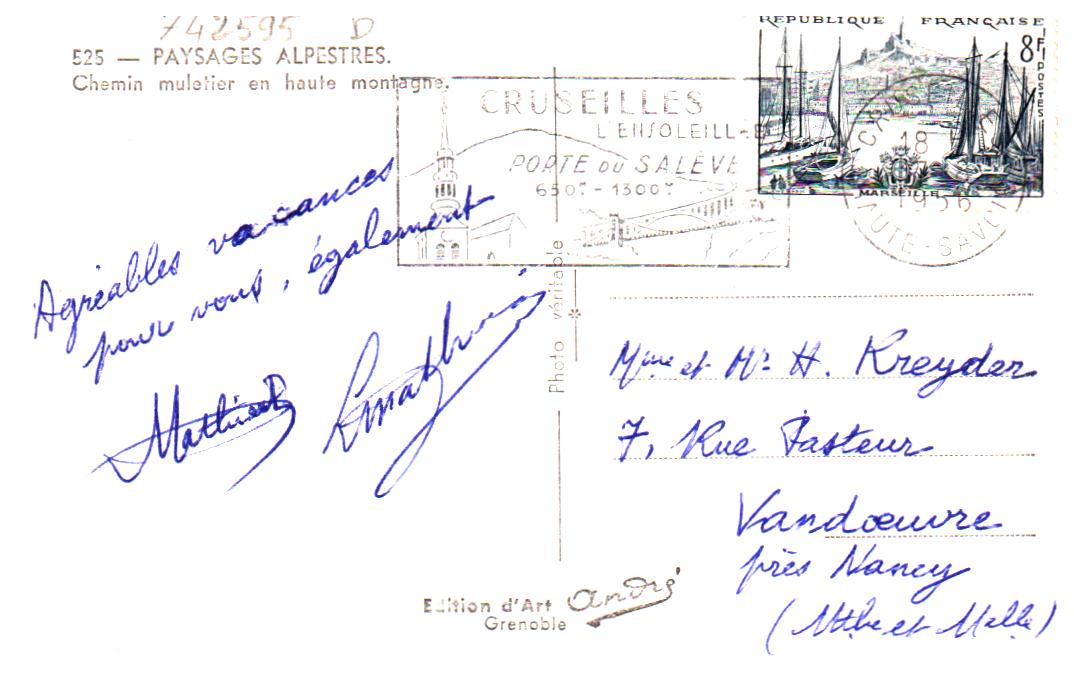 742595 D
525 — PAYSAGES ALPESTRES.
Chemin muletier en haute montagne.
CRUSEILLES
L'ENSOLEILLÉE
PORTE DU SALÈVE
650m - 1300m
RÉPUBLIQUE FRANÇAISE
8F
POSTES
MARSEILLE
18
1956
HAUTE-SAVOIE
Agréables vacances
pour vous, également
Mathieu
Photo véritable
Mme et Mr H. Kreyder
7, Rue Pasteur
Vandœuvre
près Nancy
(Mthe et Melle)
Edition d'Art André
Grenoble